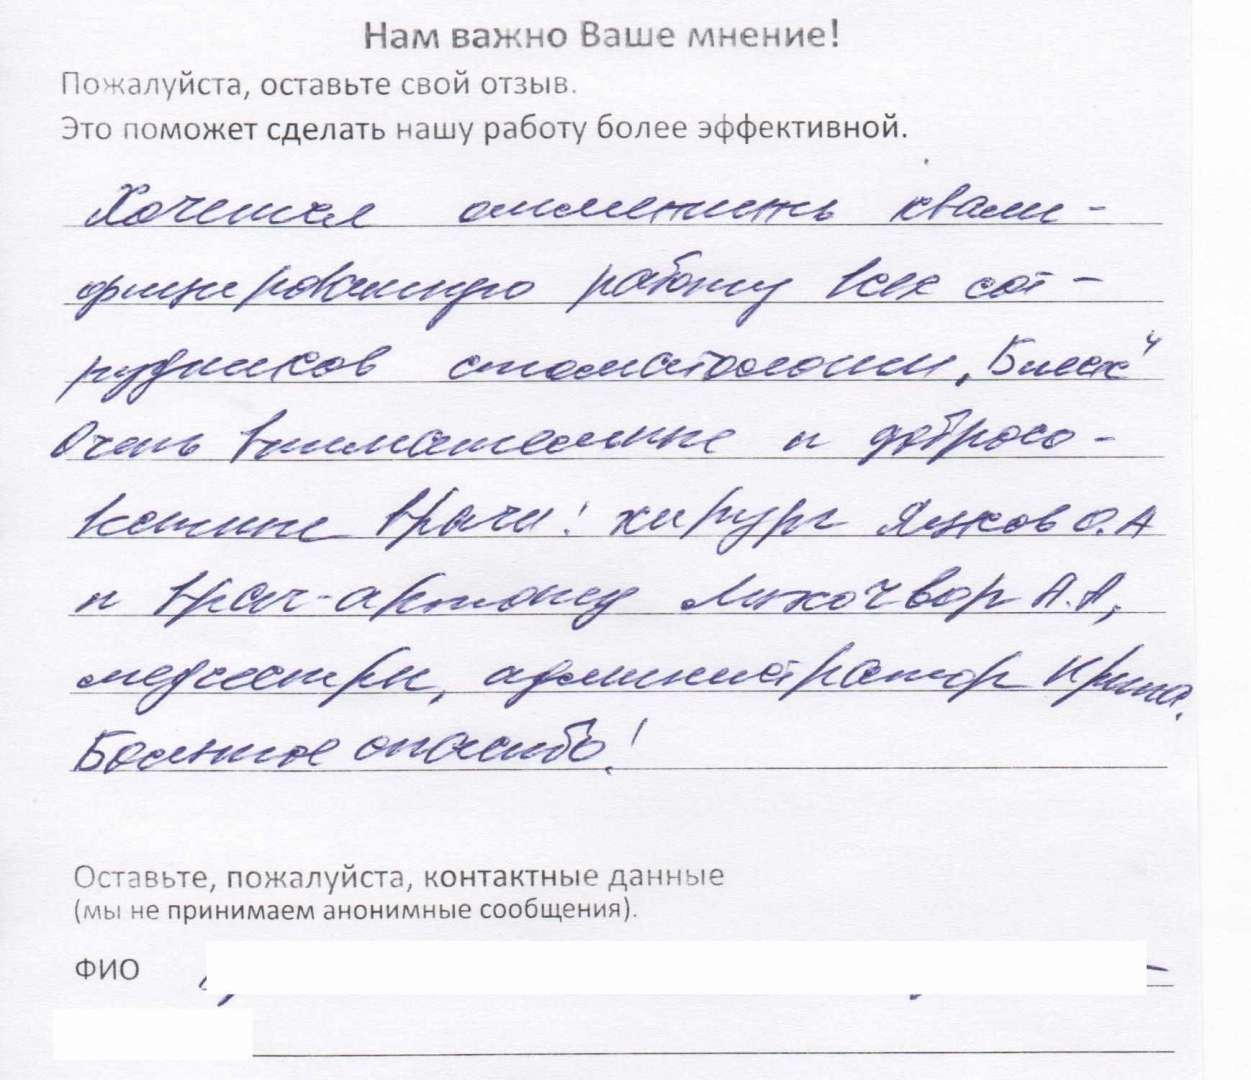 Нам важно Ваше мнение!
Пожалуйста, оставьте свой отзыв.
Это поможет сделать нашу работу более эффективной.
Хочется отметить квали-
фицированную работу всех сот-
рудников стоматологии
Очень внимательные и добросо-
вестные врачи: хирург О.А
и врач-ортопед Лихочвор А.А,
медсестры, администратор
Большое спасибо!
Оставьте, пожалуйста, контактные данные
(мы не принимаем анонимные сообщения).
ФИО